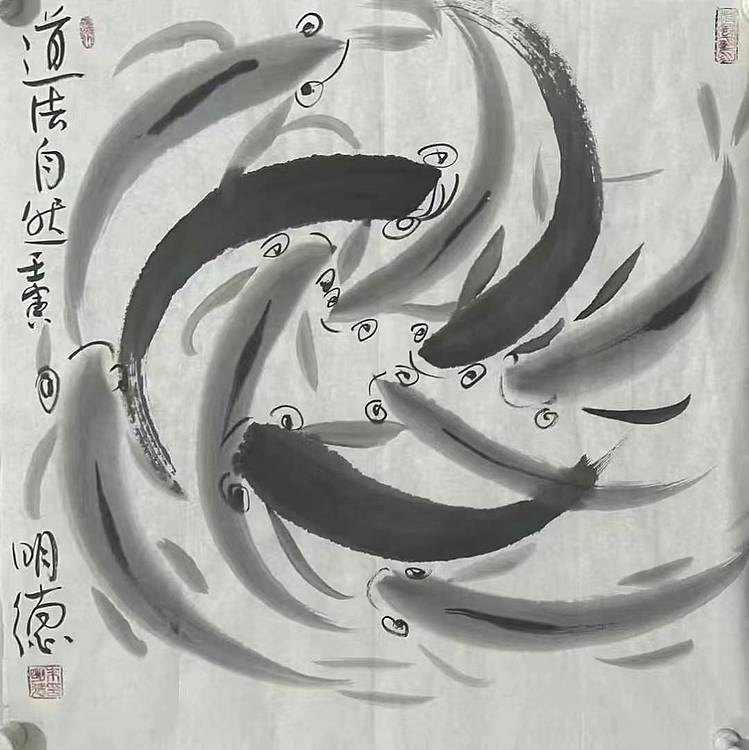 道法自然 壬寅
明德